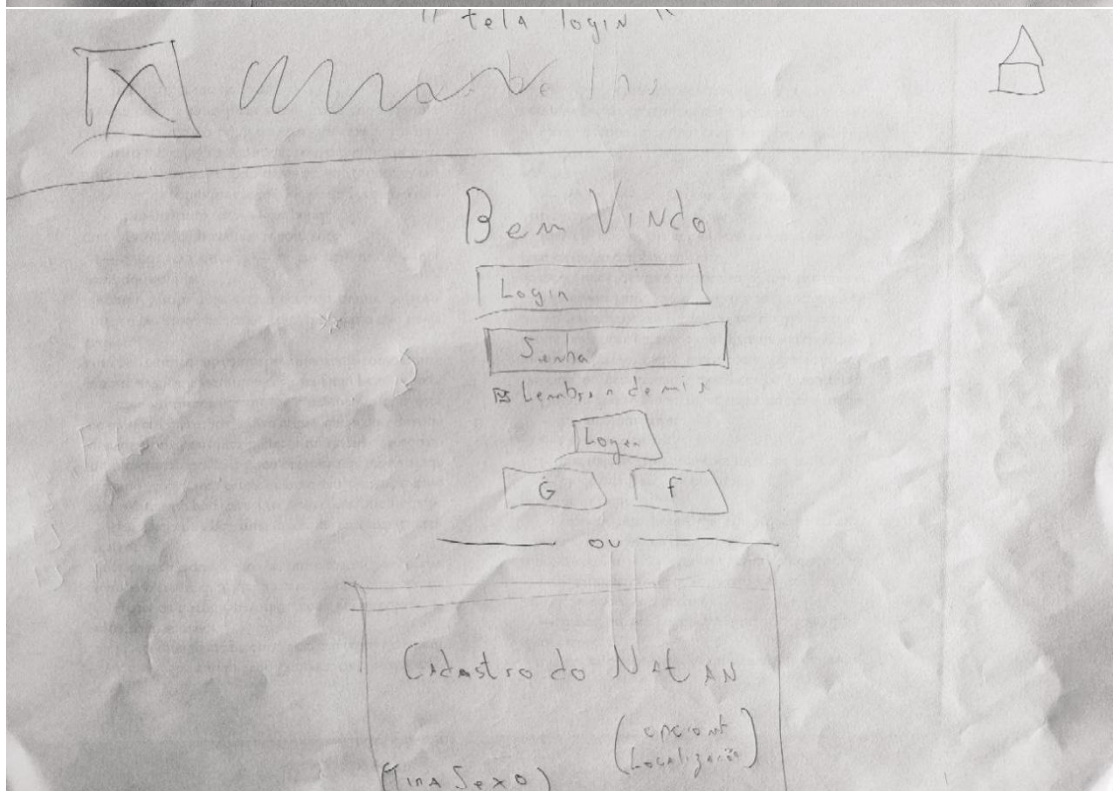 " tela login "
Bem Vindo
Login
Senha
Lembrar de mim
Logar
G F
ou
Cadastro do NATAN
(opcional
Localização)
(Tira Sexo)